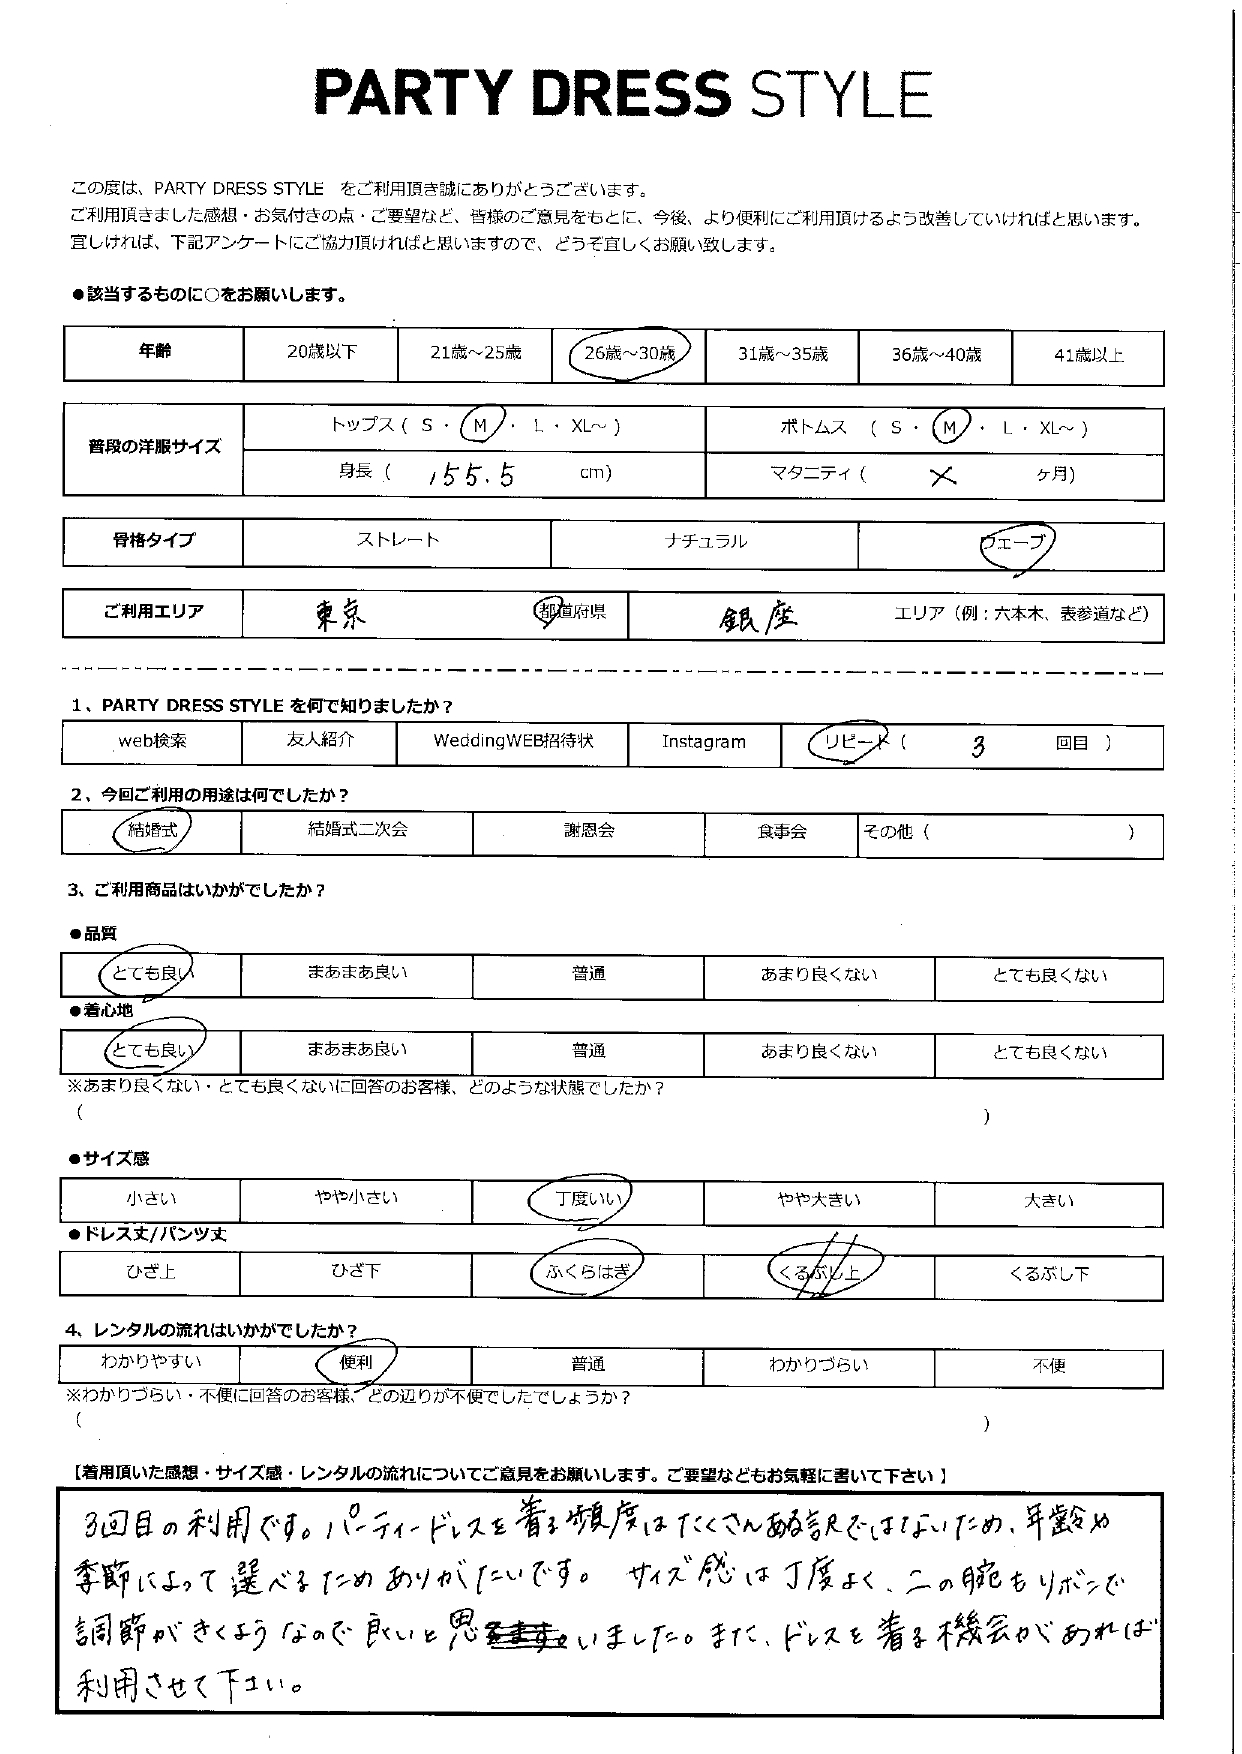 PARTY DRESS STYLE
この度は、PARTY DRESS STYLE をご利用頂き誠にありがとうございます。
ご利用頂きました感想・お気付きの点・ご要望など、皆様のご意見をもとに、今後、より便利にご利用頂けるよう改善していければと思います。
宜しければ、下記アンケートにご協力頂ければと思いますので、どうぞ宜しくお願い致します。
●該当するものに○をお願いします。
年齢 20歳以下 21歳～25歳 26歳～30歳 31歳～35歳 36歳～40歳 41歳以上
普段の洋服サイズ トップス ( S ・ M ・ L ・ XL～ ) ボトムス ( S ・ M ・ L ・ XL～ )
身長 ( 155.5 cm) マタニティ ( × ヶ月)
骨格タイプ ストレート ナチュラル ウェーブ
ご利用エリア 東京 都道府県 銀座 エリア（例：六本木、表参道など）
1、PARTY DRESS STYLE を何で知りましたか？
web検索 友人紹介 WeddingWEB招待状 Instagram リピート ( 3 回目 )
2、今回ご利用の用途は何でしたか？
結婚式 結婚式二次会 謝恩会 食事会 その他 ( )
3、ご利用商品はいかがでしたか？
●品質
とても良い まあまあ良い 普通 あまり良くない とても良くない
●着心地
とても良い まあまあ良い 普通 あまり良くない とても良くない
※あまり良くない・とても良くないに回答のお客様、どのような状態でしたか？
( )
●サイズ感
小さい やや小さい 丁度いい やや大きい 大きい
●ドレス丈/パンツ丈
ひざ上 ひざ下 ふくらはぎ くるぶし上 くるぶし下
4、レンタルの流れはいかがでしたか？
わかりやすい 便利 普通 わかりづらい 不便
※わかりづらい・不便に回答のお客様、どの辺りが不便でしたでしょうか？
( )
【着用頂いた感想・サイズ感・レンタルの流れについてご意見をお願いします。ご要望などもお気軽に書いて下さい 】
3回目の利用です。パーティードレスを着る頻度はたくさんある訳ではないため、年齢や
季節によって選べるためありがたいです。 サイズ感は丁度よく、二の腕もリボンで
調節がきくようなので良いと思いました。また、ドレスを着る機会があれば
利用させて下さい。